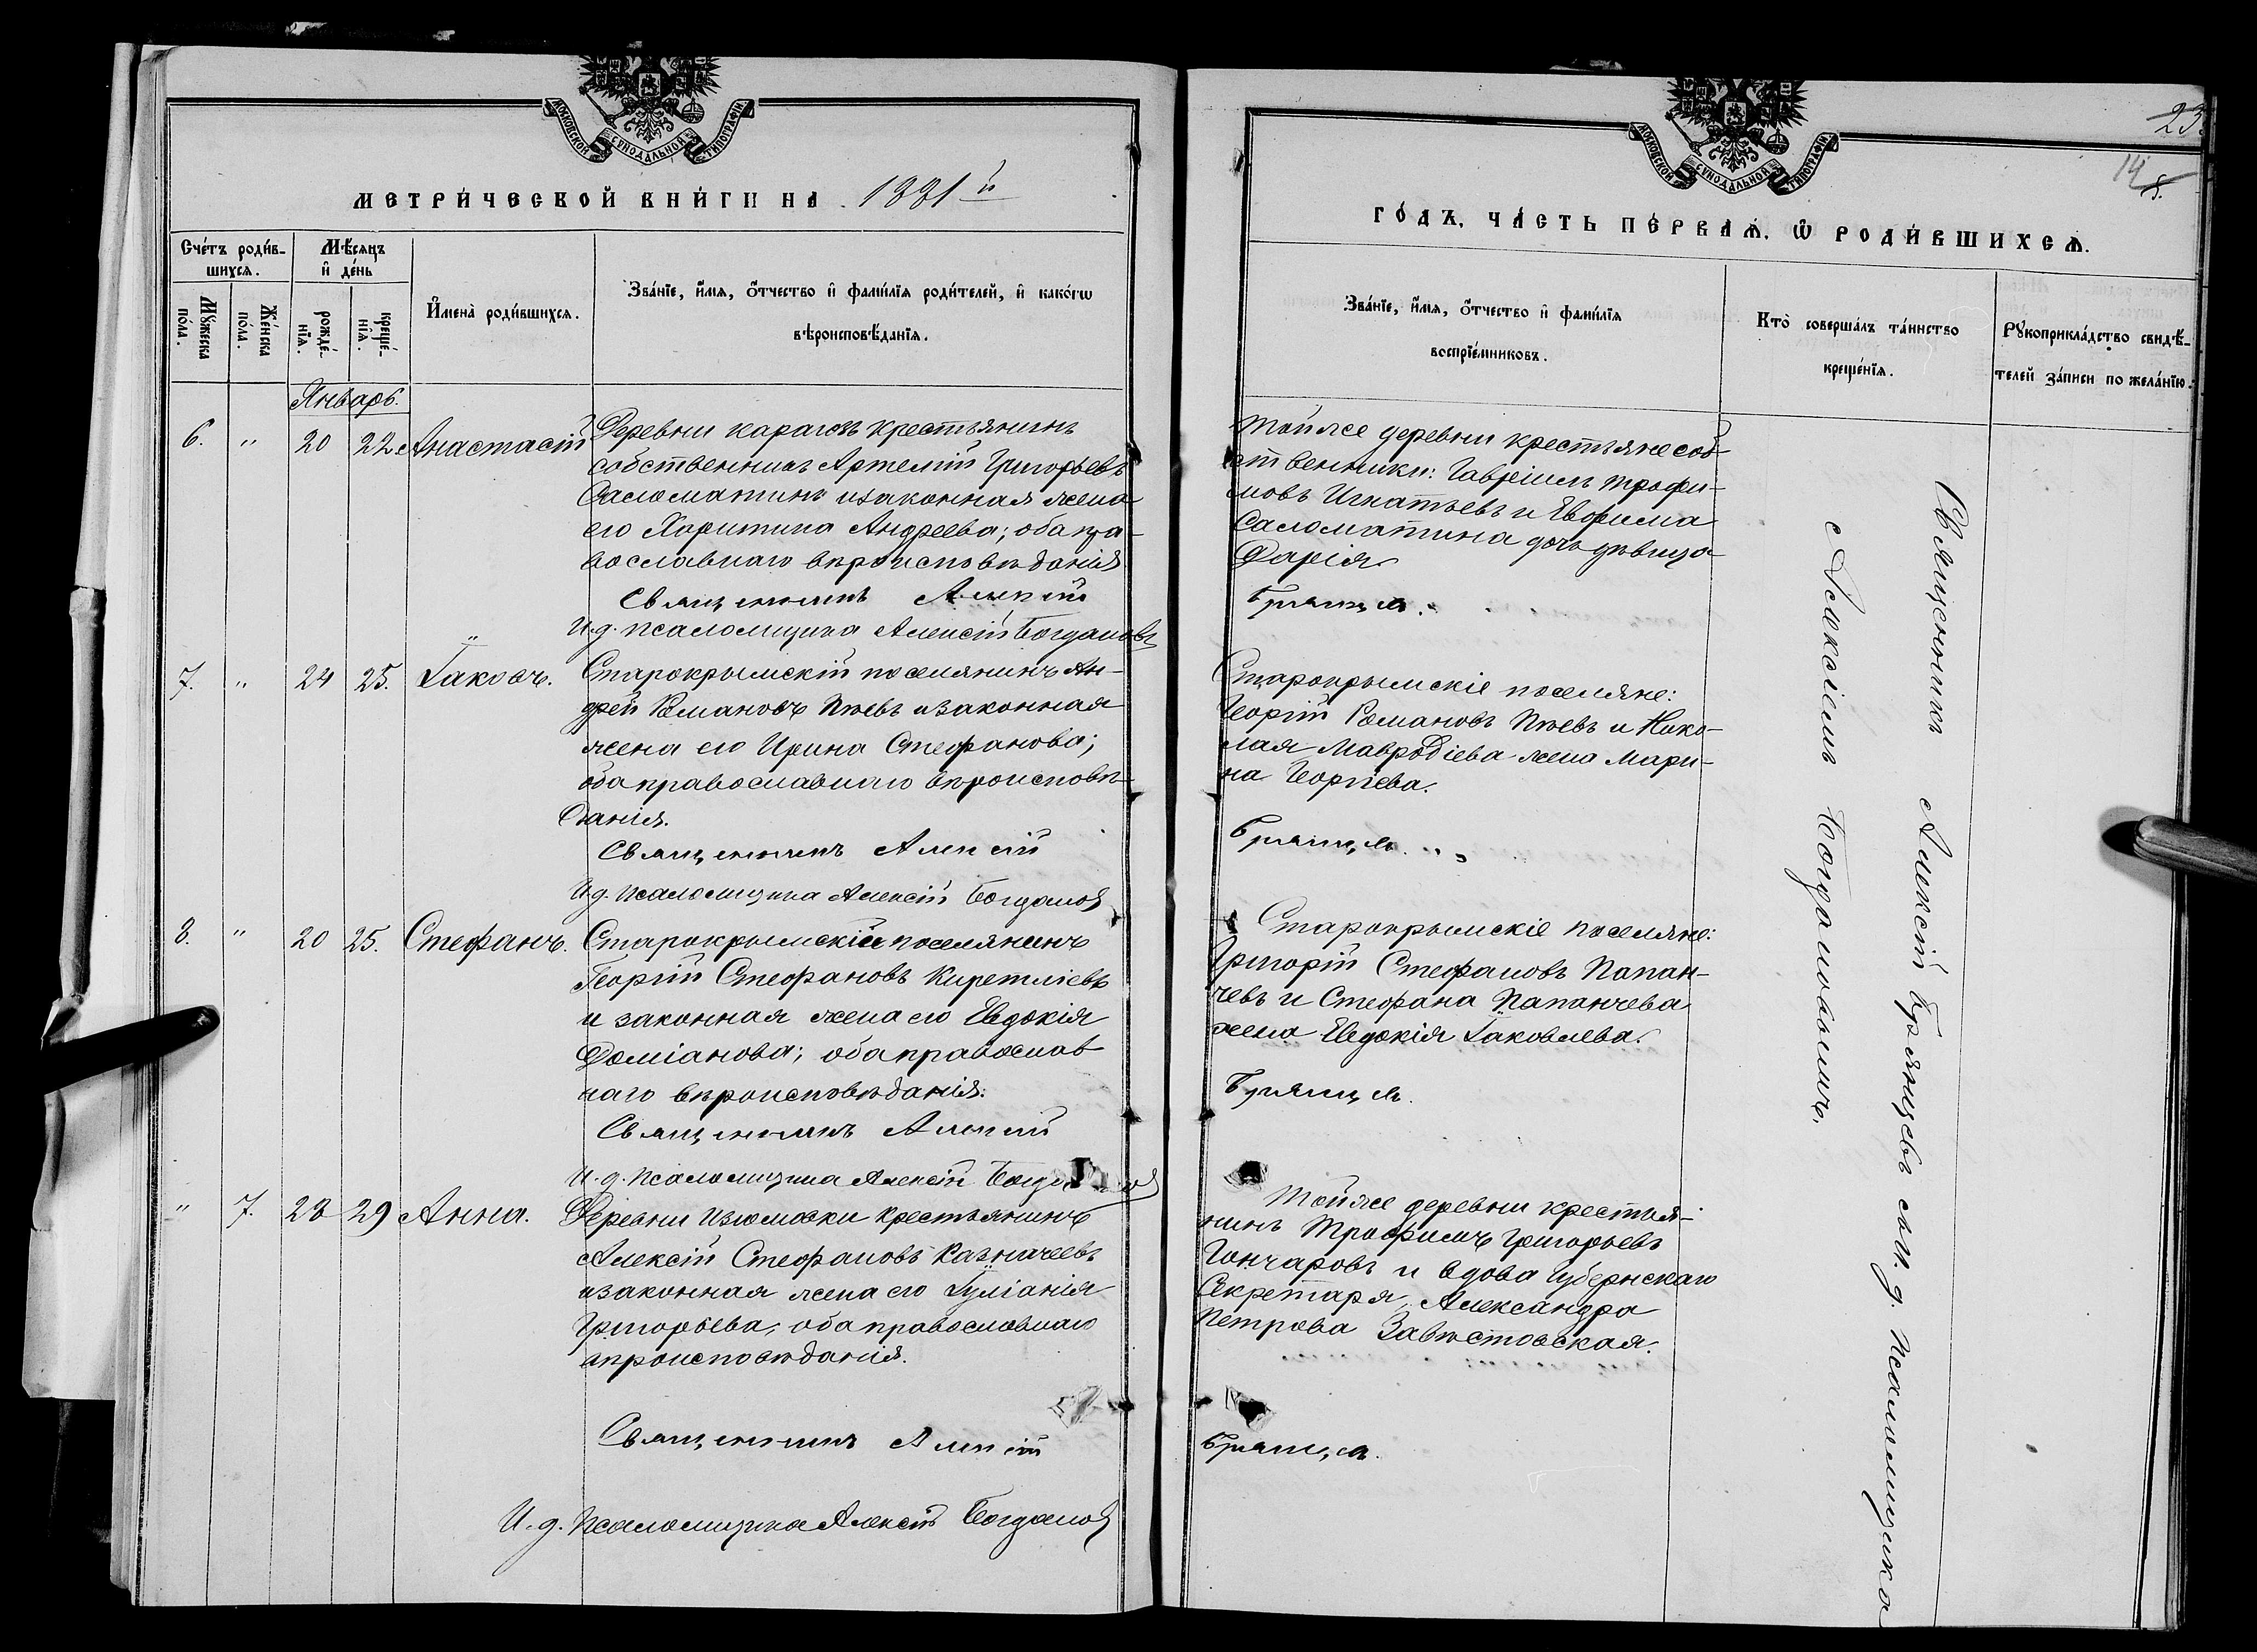 МОСКОВСКОЙ СѴНОДАЛЬНОЙ ТИПОГРАФІИ
МЕТРИ́ЧЕСКОЙ КНИ́ГИ НА 1881й
Сче́тъ роди́в-
шихсѧ.
Мѣ́сѧцъ
и҆ де́нь
Мꙋ́жеска
по́ла.
Же́нска
по́ла.
рожде́-
нїѧ.
креще́-
нїѧ.
И҆мена̀ роди́вшихсѧ.
Зва́нїе, и҆́мѧ, ѻ҆́тчество и҆ фамі́лїѧ роди́телей, и҆ како́гѡ
вѣроисповѣ́данїѧ.
Январь.
6. " 20 22 Анастасій
Деревни Карагозъ крестьянинъ
собственникъ Артемій Григорьевъ
Саломатинъ и законная жена
его Харитина Андреева; оба пра-
вославнаго вѣроисповѣданія
Священникъ Алексій
И.д. псаломщика Алексій Богдановъ
7. " 24 25. Іаковъ.
Старокрымскій поселянинъ Ан-
дрей Романовъ Пѣевъ и законная
жена его Ирина Стефанова;
оба православнаго вѣроисповѣ-
данія.
Священникъ Алексій
И.д. псаломщика Алексій Богдановъ
8. " 20 25. Стефанъ.
Старокрымскій поселянинъ
Георгій Стефановъ Киретліевъ
и законная жена его Евдокія
Даміанова; оба православ
наго вѣроисповѣданія.
Священникъ Алексій
И.д. псаломщика Алексій
" 7. 28 29 Анна.
Деревни Изюмовки крестьянинъ
Алексій Стефановъ Казначеевъ
и законная жена его Іуліанія
Григорьева, оба православнаго
вѣроисповѣданія.
Священникъ Алексій
И.д. псаломщика Алексій Богдановъ
МОСКОВСКОЙ СѴНОДАЛЬНОЙ ТИПОГРАФІИ
23.
14
8.
ГО́ДЪ, ЧА́СТЬ ПЕ́РВАѦ, Ѡ РОДИ́ВШИХСѦ.
Зва́нїе, и҆́мѧ, ѻ҆́тчество и҆ фамі́лїѧ
воспрїе́мниковъ.
Кто̀ соверша́лъ та́инство
креще́нїѧ.
Рꙋкоприкла́дство свидѣ́-
телей за́писи по жела́нїю.
Той же деревни крестьяне соб-
ственники: Гавріилъ Трофи-
мовъ Игнатьевъ и Ефима
Саломатина дочь дѣвица
Дарія
Брянцевъ.
Старокрымскіе поселяне:
Георгій Романовъ Пѣевъ и Нико-
лая Мавродіева жена Мари-
на Георгіева.
Брянцевъ.
Старокрымскіе поселяне:
Григорій Стефановъ Папан-
чевъ и Стефана Папанчева
жена Евдокія Іаковлева.
Брянцевъ.
Той же деревни крестья-
нинъ Трофимъ Григорьевъ
Гончаровъ и вдова Губернскаго
Секретаря Александра
Петрова Завѣстовская.
Брянцевъ.
Священникъ Алексій Брянцевъ съ И. д. псаломщика
Алексіемъ Богдановымъ.